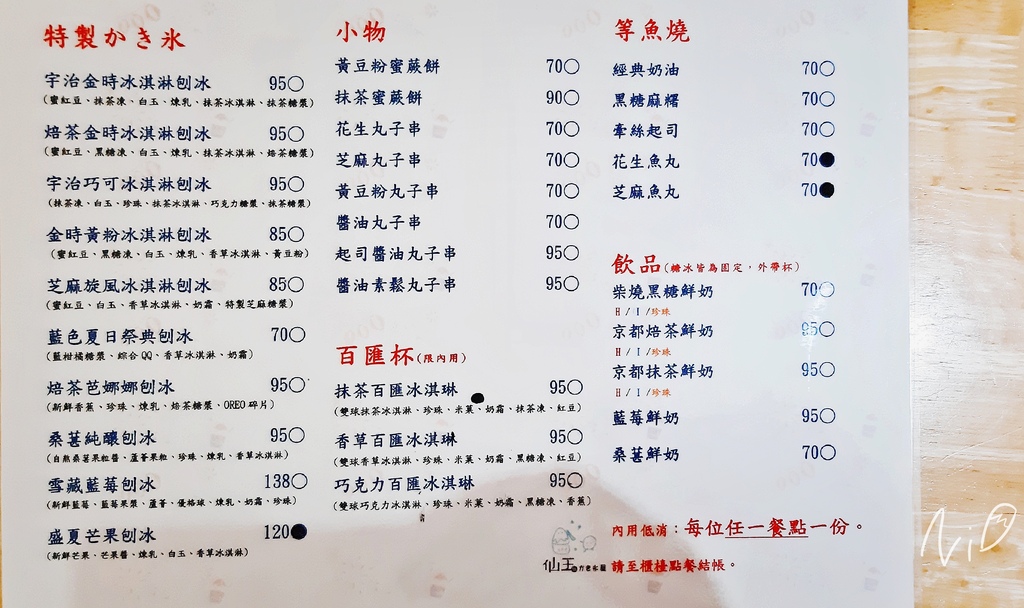 特製かき氷
宇治金時冰淇淋刨冰 95○
(蜜紅豆、抹茶凍、白玉、煉乳、抹茶冰淇淋、抹茶糖漿)
焙茶金時冰淇淋刨冰 95○
(蜜紅豆、黑糖凍、白玉、煉乳、抹茶冰淇淋、焙茶糖漿)
宇治巧可冰淇淋刨冰 95○
(抹茶凍、白玉、珍珠、抹茶冰淇淋、巧克力糖漿、抹茶糖漿)
金時黃粉冰淇淋刨冰 85○
(蜜紅豆、黑糖凍、白玉、煉乳、香草冰淇淋、黃豆粉)
芝麻旋風冰淇淋刨冰 85○
(蜜紅豆、白玉、香草冰淇淋、奶霜、特製芝麻糖漿)
藍色夏日祭典刨冰 70○
(藍柑橘糖漿、綜合QQ、香草冰淇淋、奶霜)
焙茶芭娜娜刨冰 95○
(新鮮香蕉、珍珠、煉乳、焙茶糖漿、OREO碎片)
桑葚純釀刨冰 95○
(自熬桑葚果粒醬、蘆薈果粒、珍珠、煉乳、香草冰淇淋)
雪藏藍莓刨冰 138○
(新鮮藍莓、藍莓果漿、蘆薈、優格球、煉乳、奶霜、珍珠)
盛夏芒果刨冰 120●
(新鮮芒果、芒果醬、煉乳、白玉、香草冰淇淋)
小物
黃豆粉蜜蕨餅 70○
抹茶蜜蕨餅 90○
花生丸子串 70○
芝麻丸子串 70○
黃豆粉丸子串 70○
醬油丸子串 70○
起司醬油丸子串 95○
醬油素鬆丸子串 95○
百匯杯(限內用)
抹茶百匯冰淇琳 95○
(雙球抹茶冰淇淋、珍珠、米菓、奶霜、抹茶凍、紅豆)
香草百匯冰淇琳 95○
(雙球香草冰淇淋、珍珠、米菓、奶霜、黑糖凍、紅豆)
巧克力百匯冰淇琳 95○
(雙球巧克力冰淇淋、珍珠、米菓、奶霜、黑糖凍、香蕉)
等魚燒
經典奶油 70○
黑糖麻糬 70○
牽絲起司 70○
花生魚丸 70●
芝麻魚丸 70●
飲品(糖冰皆為固定，外帶杯)
柴燒黑糖鮮奶 70○
H / I /珍珠
京都焙茶鮮奶 95○
H / I /珍珠
京都抹茶鮮奶 95○
H / I /珍珠
藍莓鮮奶 95○
桑葚鮮奶 70○
內用低消：每位任一餐點一份。
請至櫃檯點餐結帳。